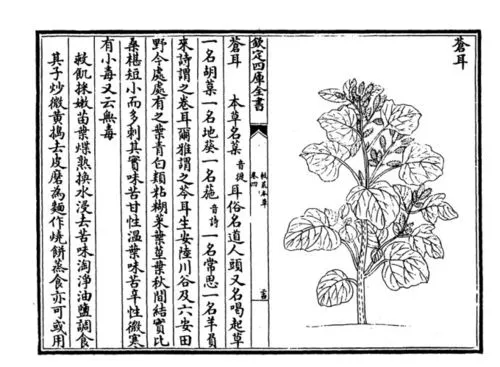 蒼耳
欽定四庫全書
救荒本草
卷四
蒼耳 本草名葈音徙耳俗名道人頭又名喝起草
一名胡葈一名地葵一名葹音詩一名常思一名羊負
來詩謂之卷耳爾雅謂之苓耳生安陸川谷及六安田
野今處處有之葉青白類粘糊菜葉莖葉秋間結實比
桑椹短小而多刺其實味苦甘性溫葉味苦辛性微寒
有小毒又云無毒
救飢採嫩苗葉煠熟換水浸去苦味淘淨油鹽調食
其子炒微黃搗去皮磨為麵作燒餅蒸食亦可或用